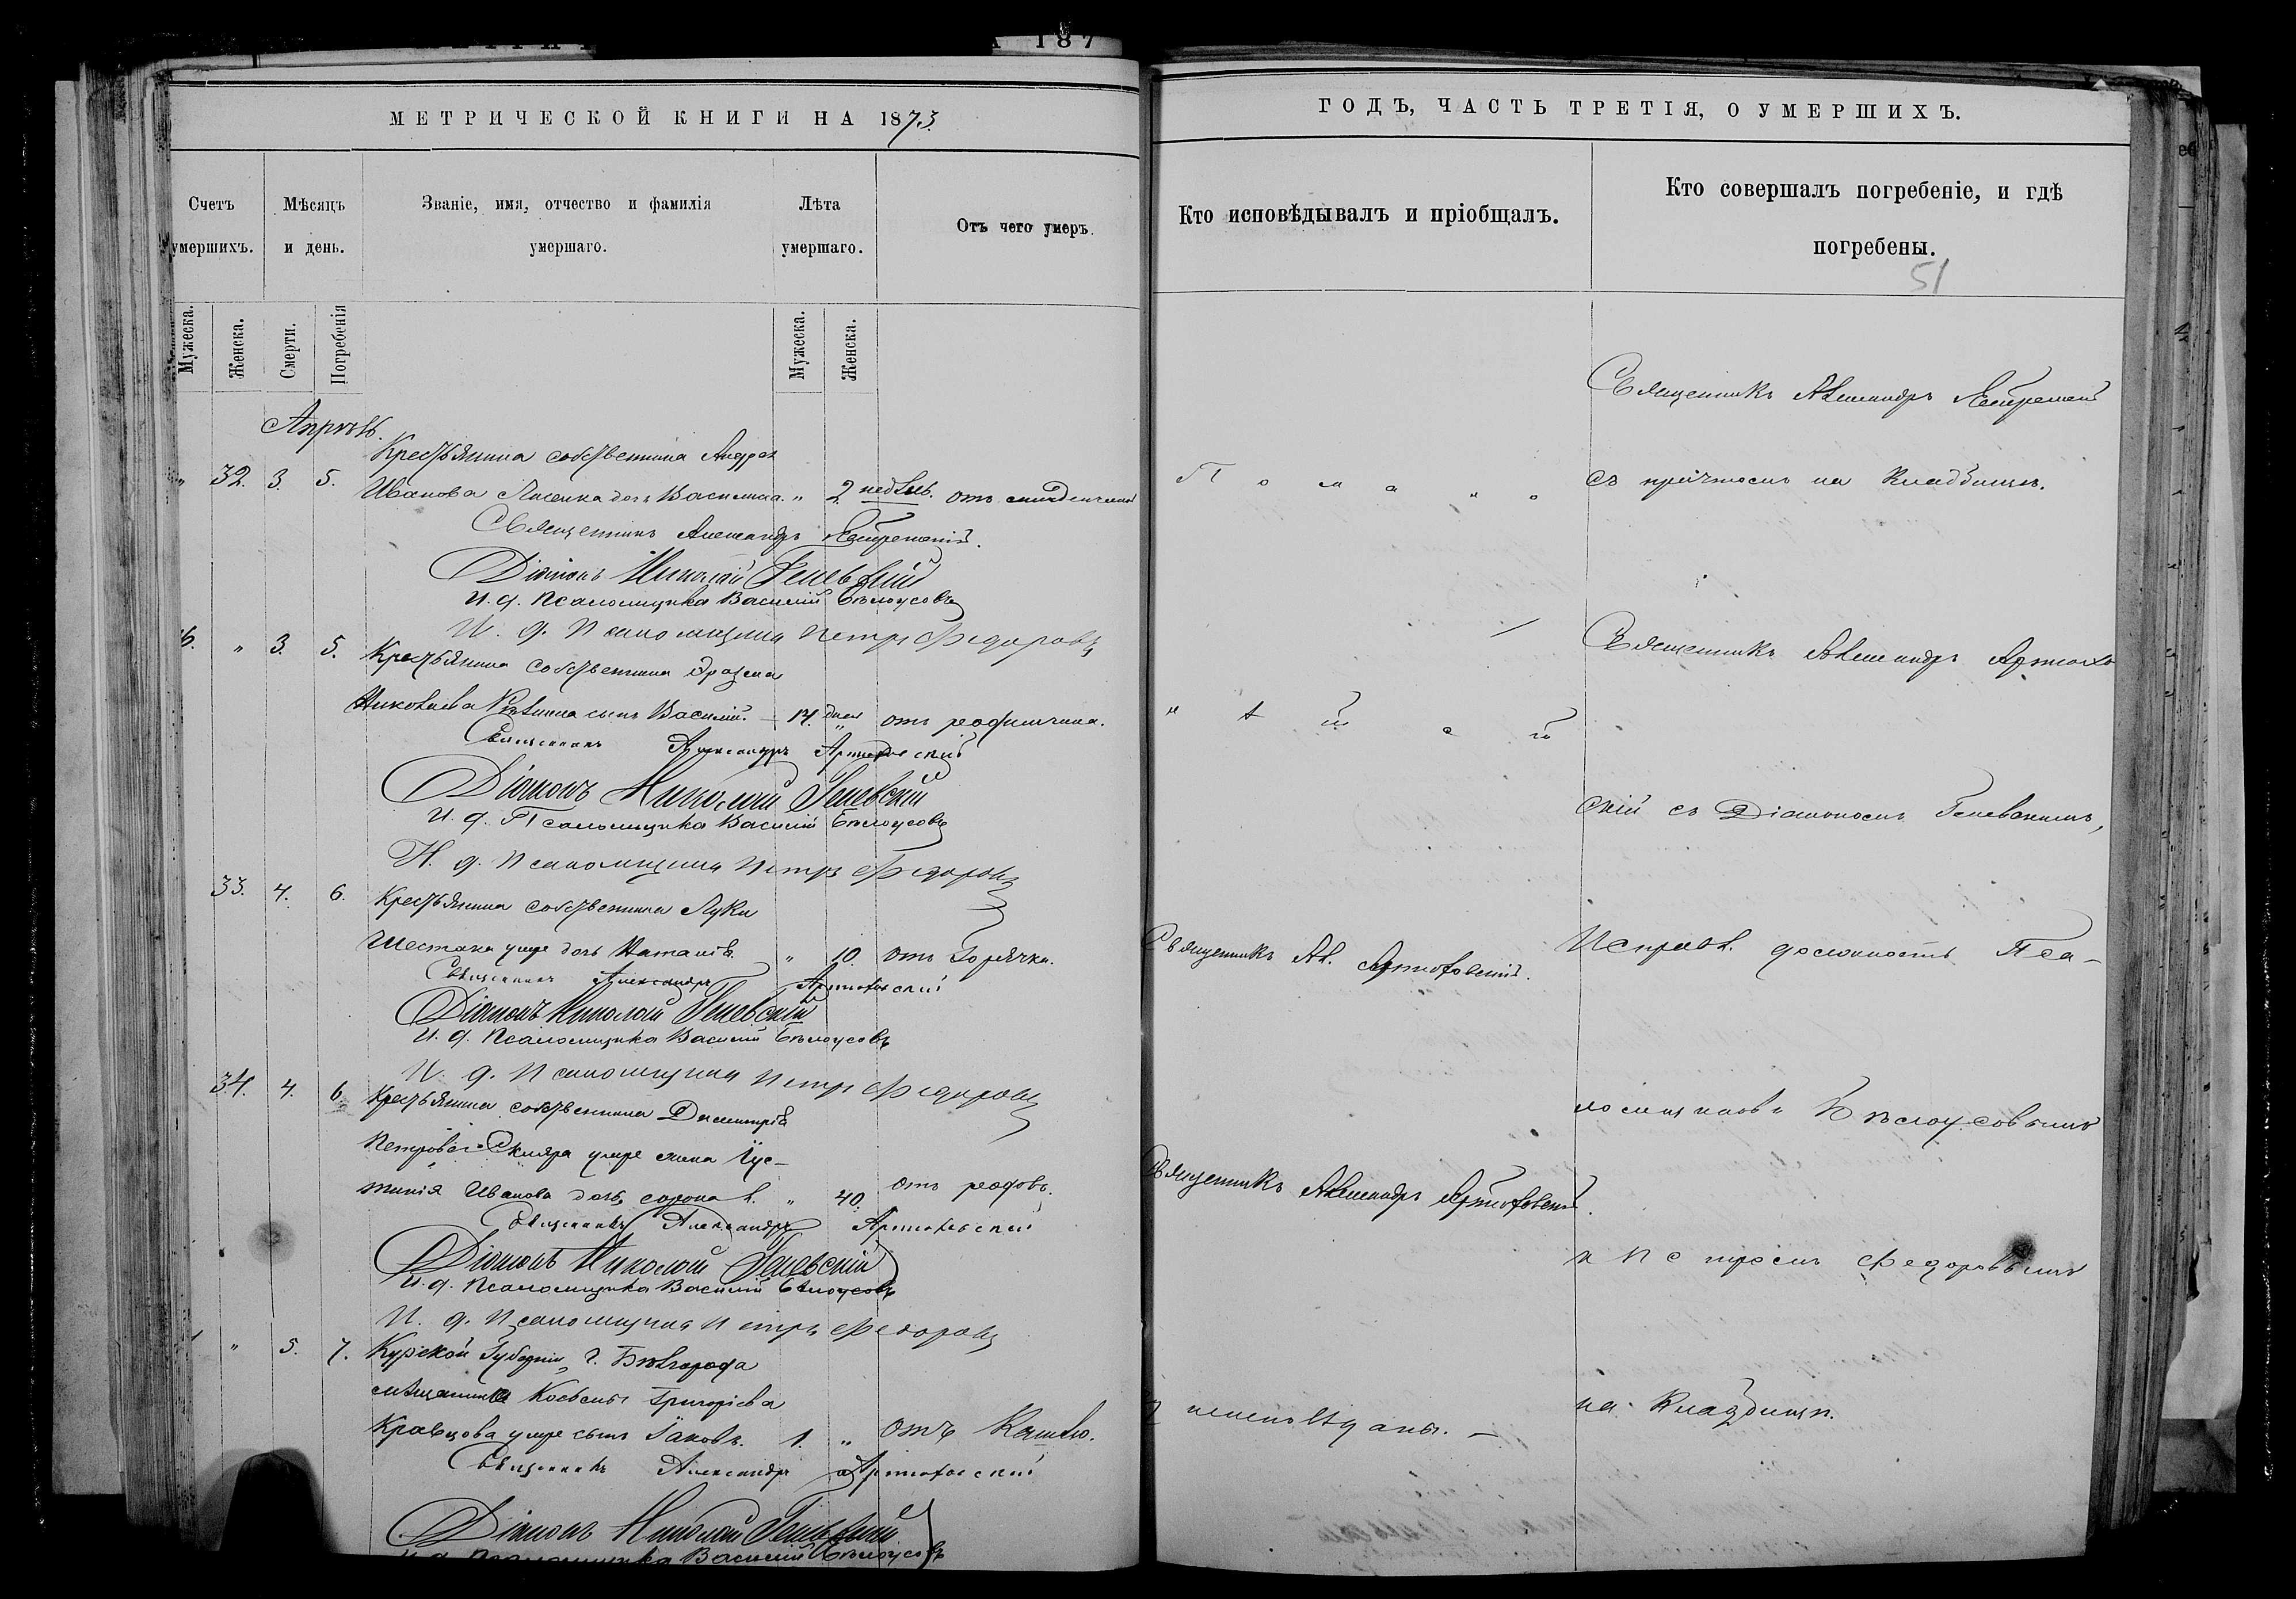 МЕТРИЧЕСКОЙ КНИГИ НА 1873.
Счетъ умершихъ.
Мѣсяцъ и день.
Званіе, имя, отчество и фамилія умершаго.
Лѣта умершаго.
Отъ чего умеръ.
Мужеска.
Женска.
Смерти.
Погребенія
Мужеска.
Женска.
Апрѣль.
Крестьянина собственника Андрея
" 32. 3. 5. Иванова дочь Василиса. " 2 недѣль. отъ
Священникъ Александръ
Діаконъ Николай Геневскій
И. д. Псаломщика Василій Бѣлоусовъ
И. д. Псаломщика Петръ Федоровъ
" 3. 5. Крестьянина собственника
Николаева сынъ Василій. 14. дней отъ
Священникъ Александръ Артюховскій
Діаконъ Николай Геневскій
И. д. Псаломщика Василій Бѣлоусовъ
И. д. Псаломщика Петръ Федоровъ
33. 4. 6. Крестьянина собственника Луки
Шестака умре дочь Наталія. " 10. отъ Горячки.
Священникъ Александръ Артюховскій
Діаконъ Николай Геневскій
И. д. Псаломщика Василій Бѣлоусовъ
И. д. Псаломщика Петръ Федоровъ
34. 4. 6. Крестьянина собственника Димитрія
Петрова Скляра умре жена Іус-
тинія Иванова дочь, сорока л. " 40. отъ родовъ.
Священникъ Александръ Артюховскій
Діаконъ Николай Геневскій
И. д. Псаломщика Василій Бѣлоусовъ
И. д. Псаломщика Петръ Федоровъ
" 5. 7. Курской Губерніи, г. Бѣлгорода
мѣщанина Григоріева
Кравцова умре сынъ Іаковъ. 1. " отъ Кашлю.
Священникъ Александръ Артюховскій
Діаконъ Николай Геневскій
И. д. Псаломщика Василій Бѣлоусовъ
ГОДЪ, ЧАСТЬ ТРЕТІЯ, О УМЕРШИХЪ.
Кто исповѣдывалъ и пріобщалъ.
Кто совершалъ погребеніе, и гдѣ погребены.
51
Священникъ Александръ
съ причтомъ на Кладбищѣ.
Священникъ Александръ Артюхов
скій съ Діакономъ Геневскимъ,
Священникъ Ал. Артюховскій.
Исправл. должность Пса-
ломщиковъ Бѣлоусовымъ
Священникъ Александръ Артюховскій.
и Петромъ Федоровымъ
на Кладбищѣ.